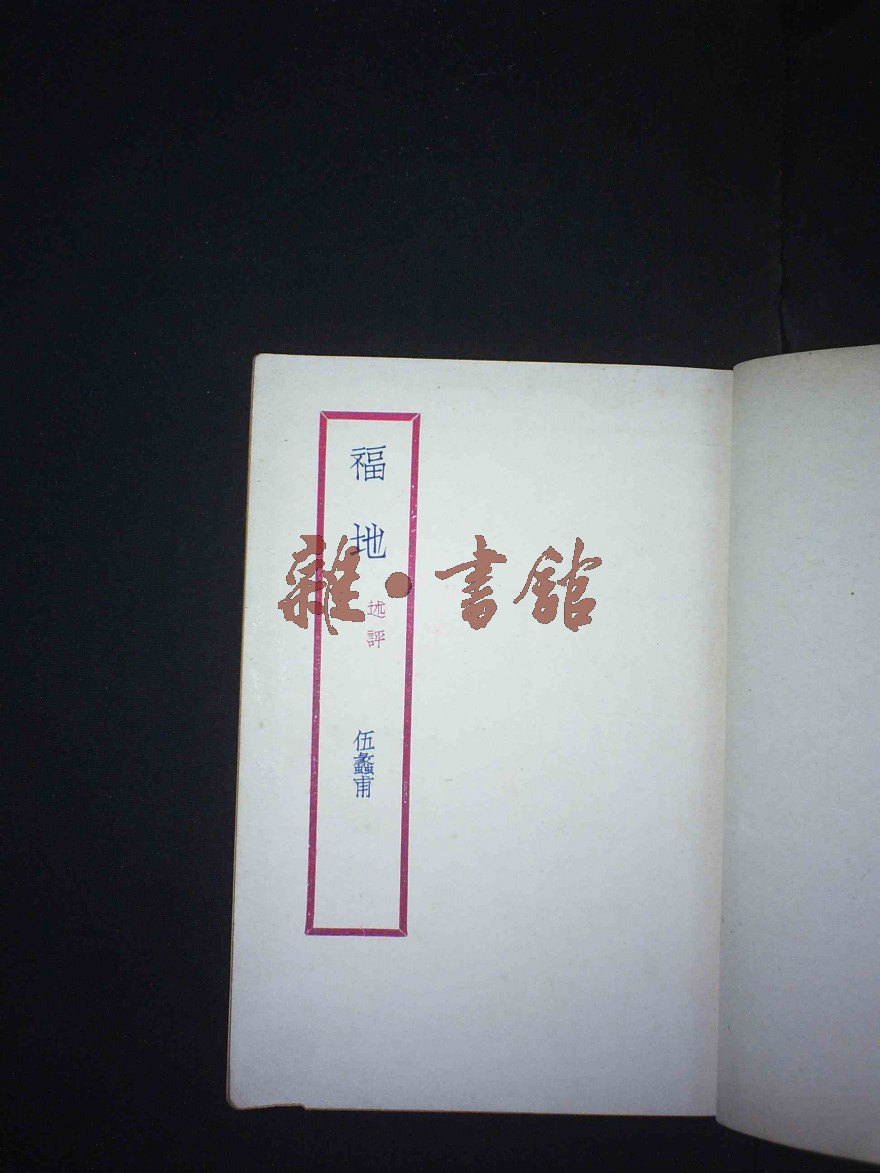 福地
述評
伍蠡甫
雜·書館